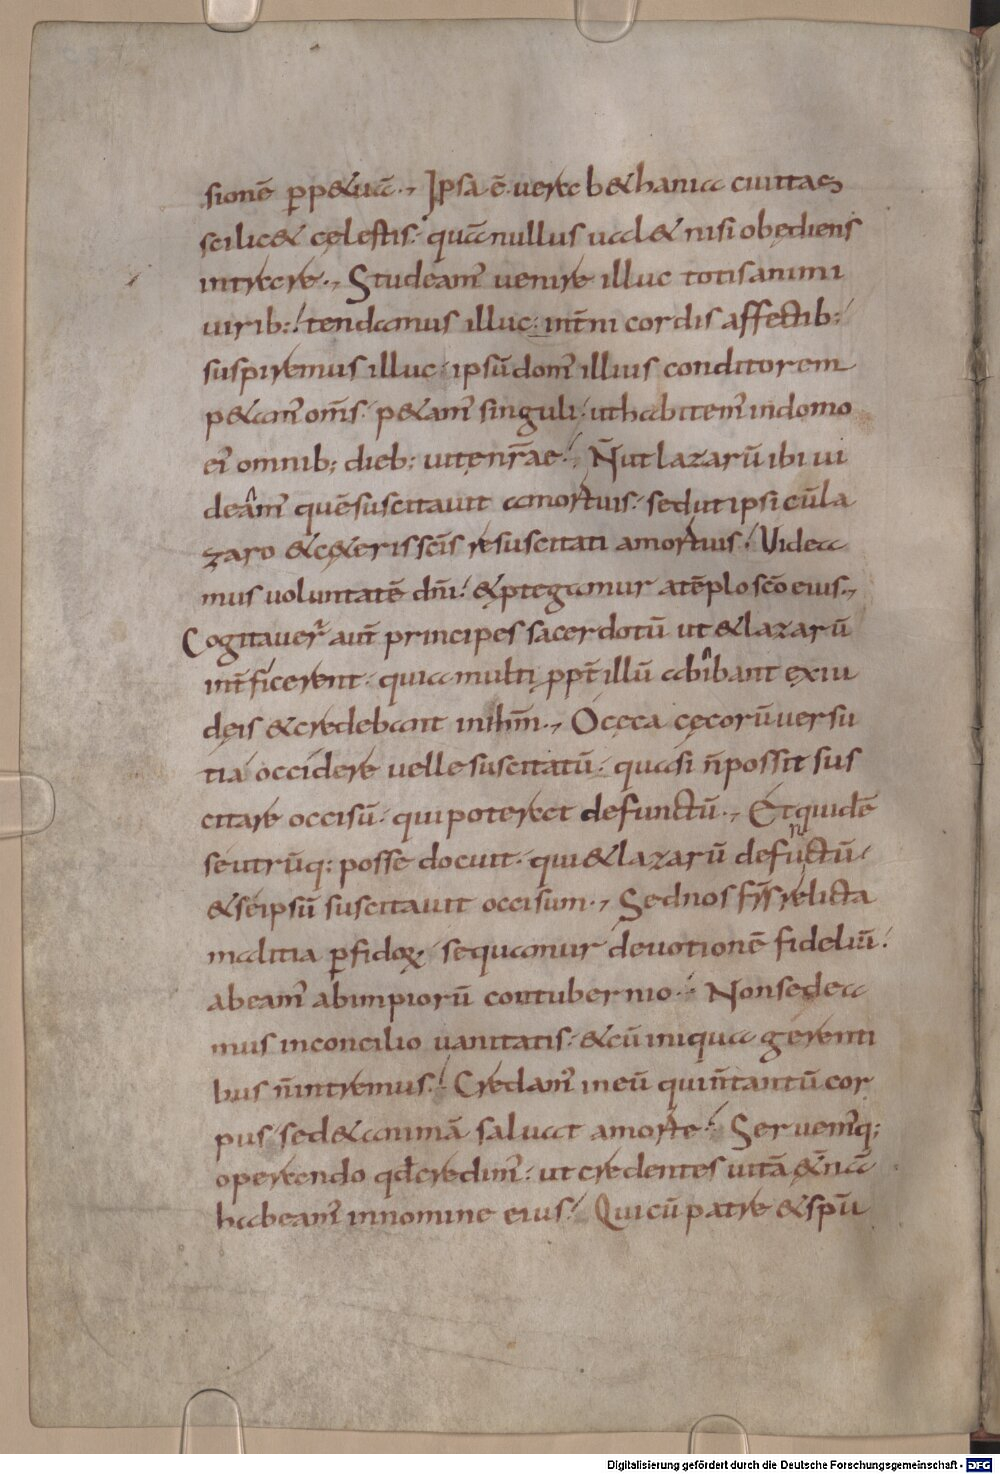 sionē ꝑp&uā., Ipsa ē uere b&hania ciuitas
scilic& cęlestis. quā nullus ual& nisi obędiens
intrare., Studeam' uenire illuc totis animi
uirib:! tendamus illuc. int̄ni cordis affectib:
suspiremus illuc. ipsū dom' illius conditorem
p&am' om̄s. p&am' singuli. ut habitem' in domo
ei' omnib; dieb; uitę nr̄ae! N̄ ut lazarū ibi ui
deam' quē suscitauit a mortuis. sed ut ipsi cū la
zaro & c&eris sc̄is resuscitati a mortuis. Videa
mus uoluntatē dn̄i! & ꝓtegamur a tēplo sc̄o eius.,
Cogitauer̄ aut̄ principes sacerdotū ut & lazarū
int̄ficerent. quia multi ꝓpt̄ illū abibant ex iu
dęis & credebant in ihm̄., O cęca cęcorū uersu
tia occidere uelle suscitatū. quasi n̄ possit sus
citare occisū. qui poterat defunctū., Et quidē
se utrūq: posse docuit. qui & lazarū defunctū.
& se ipsū suscitauit occisum., Sed nos fr̄s relicta
malitia ꝑfidoꝝ. sequamur deuotionē fideliū!
abeam' ab impiorū contubernio. Non sedea
mus in concilio uanitatis. & cū iniqua gerenti
bus n̄ intremus! Credam' in eū qui n̄ tantū cor
pus sed & animā saluat a morte! Seruem'q;
operando qđ credim'. ut credentes uitā ę̄nā
habeam' in nomine eius! Qui cū patre & spū
Digitalisierung gefördert durch die Deutsche Forschungsgemeinschaft - DFG